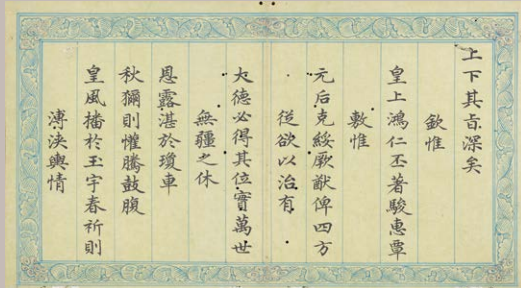 上下其旨深矣
欽惟
皇上鴻仁丕著駿惠覃
敷惟
元后克綏厥猷俾四方
從欲以治有
大德必得其位實萬世
無疆之休
恩露湛於瓊車
秋獮則懽騰鼓腹
皇風播於玉宇春祈則
溥浹輿情